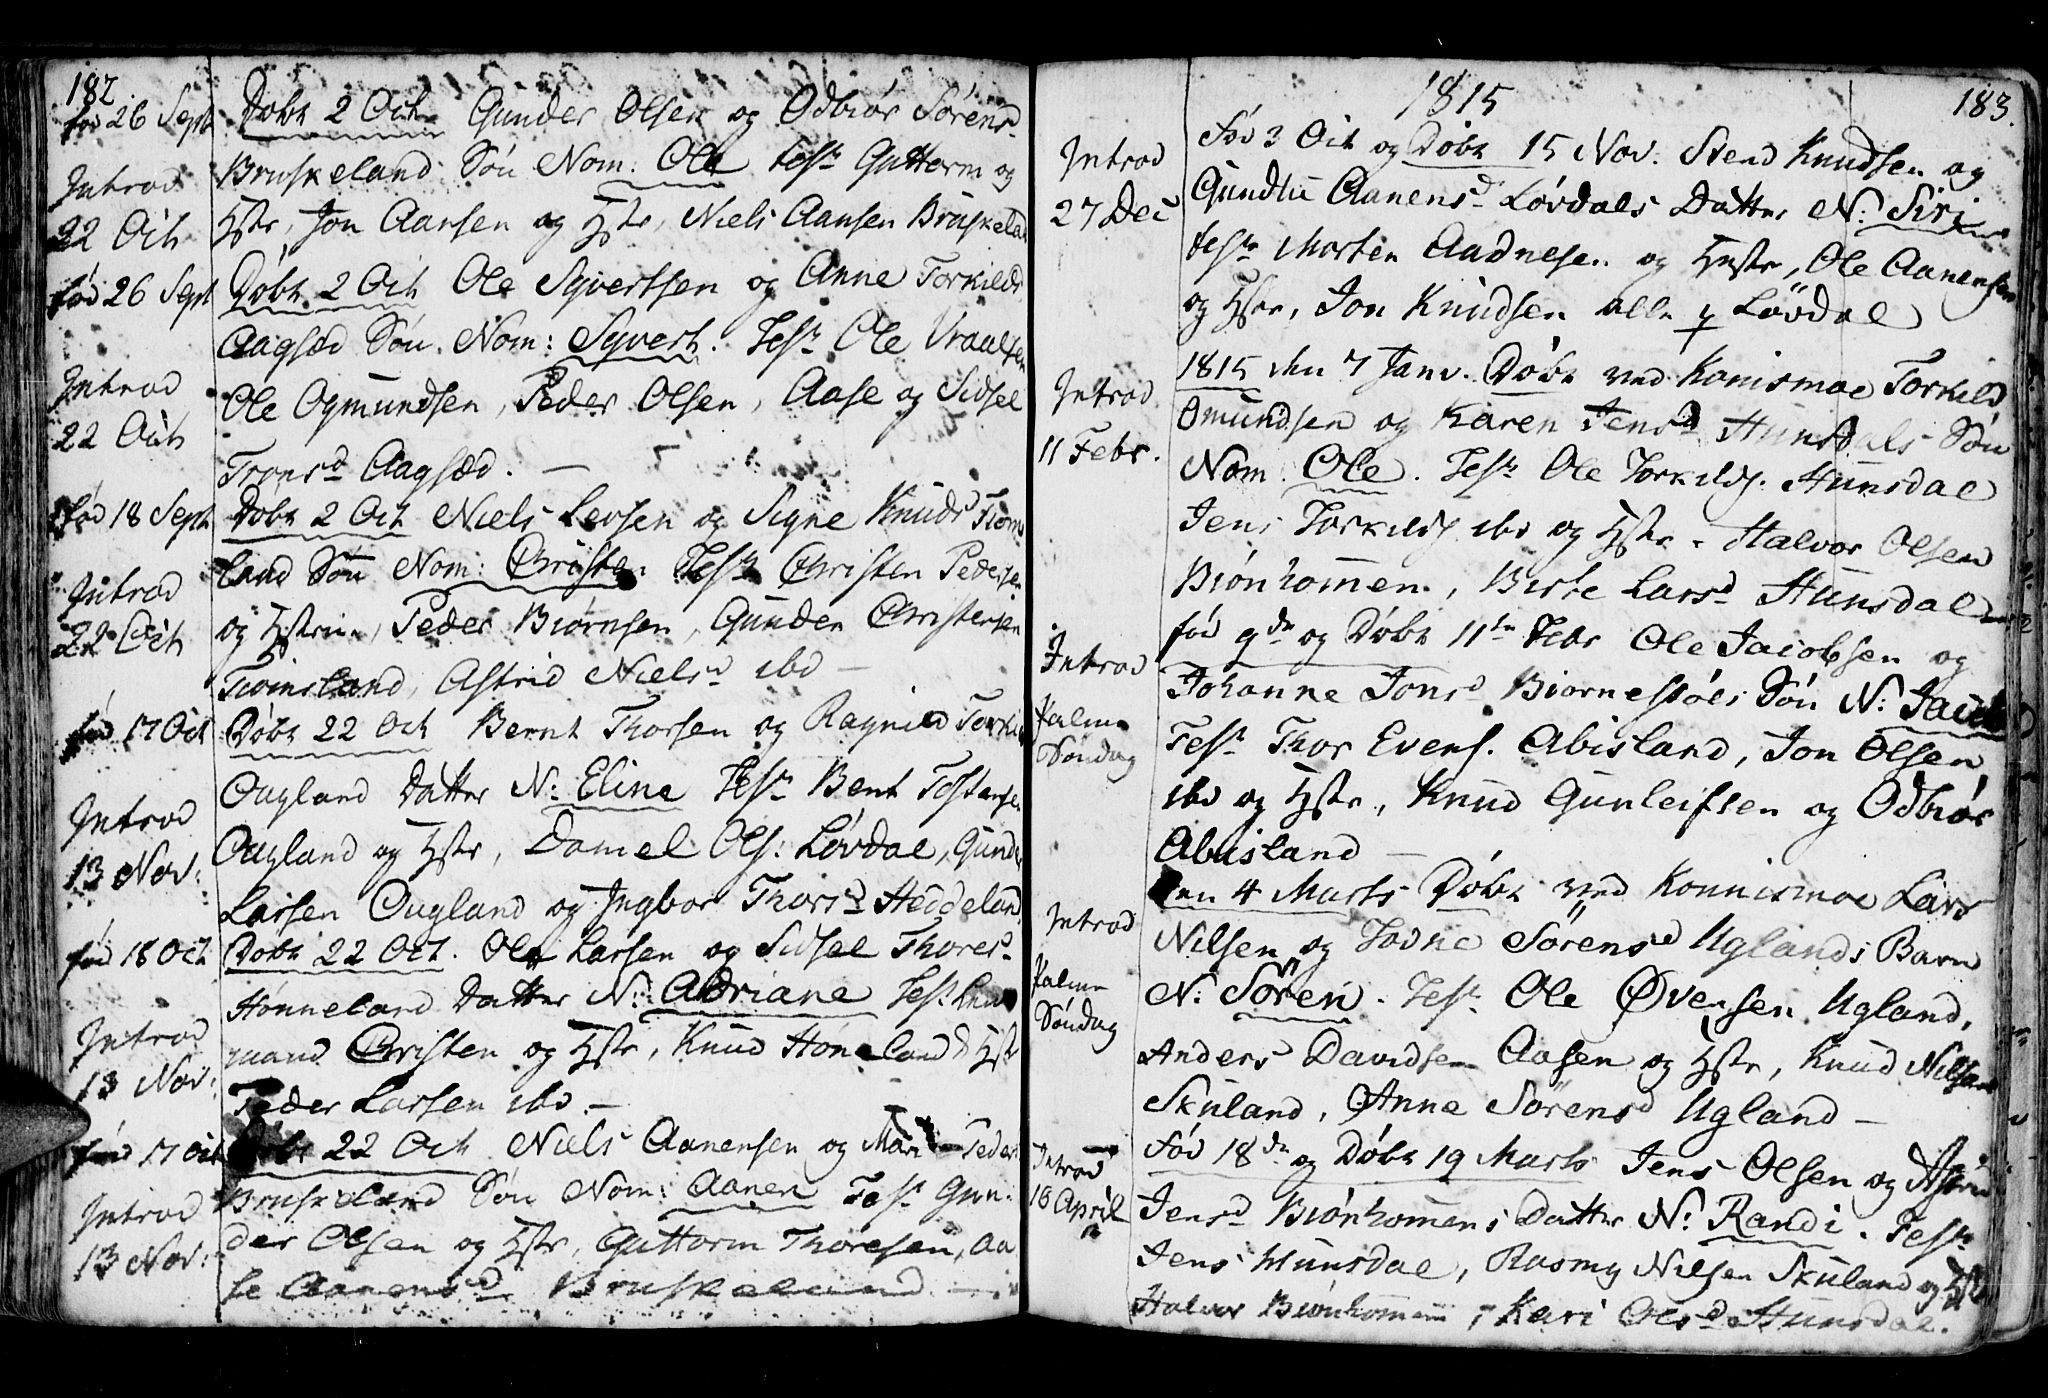 182.
fød 26 Sept
Døbt 2 Octr Gunder Olsen og Odbiør Sørensd
Introd
Bruskeland Søn Nom. Ole Test Guttorm og
22 Octr
Hstr, Jon Aansen og Hstr, Niels Aansen Bruskeland
fød 26 Sept
Døbt 2 Octr Ole Syvertsen og Anne Torkilds
Aagsæd Søn Nom: Syvert. Test Ole Vraalsen
Introd
Ole Ogmundsen, Peder Olsen, Aase og Sidsel
22 Octr
Tronsd Aagsæd. —
fød 18 Sept
Døbt 2 Octr Niels Levsen og Signe Knuds
Introd
land Søn Nom: Christen Test Christen Pedersen
22 Octr
og Hstrin, Peder Biørnsen, Gunder Christensen
Astrid Nielsd ibd —
fød 17 Oct
Døbt 22 Oct Bernt Thorsen og Ragnild
Ougland Datter N: Eline Test Bent Tostensen
Introd
Ougland og Hstr, Daniel Ols: Løvdal, Gunder
13 Nov:
Larsen Ougland og Ingbor Thorsd Heddeland
fød 18 Oct
Døbt 22 Oct. Ole Larsen og Sidsel Thoresd
Hønneland Datter N: Adriane Test
Introd
mand Christen og Hstr, Knud Høneland & Hstr
13 Nov:
Peder Larsen ibd. —
fød 17 Oct
Døbt 22 Oct Niels Aanensen og Mari Peders
Introd
Bruskeland Søn Nom: Aanen Test Gun-
13 Nov:
der Olsen og Hstr, Guttorm Thoresen, Aa
se Aanensd Bruskeland —
1815
183.
Introd
27 Dec
Fød 3 Oct og Døbt 15 Nov. Svend Knudsen og
Gundlu Aanensd Løvdals Datter N: Siri
test Morten Aadnesen og Hustr, Ole Aanensen
og Hstr, Jon Knudsen alle p Løvdal
Introd
11 Febr.
1815 den 7 Janv. Døbt ved Konismoe Torkild
Omundsen og Karen Jensd Hunsdals Søn
Nom. Ole. Test Ole Torkilds. Hunsdal
Jens Torkilds ibd og Hstr. Halvor Olsen
Biønhommen, Birte Larsd Hunsdal
Introd
Palme
Søndag
fød 9de og Døbt 11te Febr Ole Jacobsen og
Johanne Jonsd Biornestøls Søn N: Jacob
Test Thor Evens. Abisland, Jon Olsen
ibd og Hstr, Knud Gunleifsen og Odbiør
Abisland —
Introd
Palme
Søndag
Den 4 Marts Døbt ved Konnismoe Lars
Nilsen og Tovne Sørensd Uglands Barn
N: Sören. Test Ole Øvensen Ugland,
Anders Davidsen Aasen og Hstr, Knud Nilsen
Skuland, Anne Sörensd Ugland —
Introd
16 April
Fød 18de og Døbt 19 Marts Jens Olsen og Astrid
Jensd Biønhomens Datter N: Randi. Test
Jens Hunsdal, Rasmus Nilsen Skuland og Hst
Halvor Biønhommen, Kari Olsd Hunsdal.